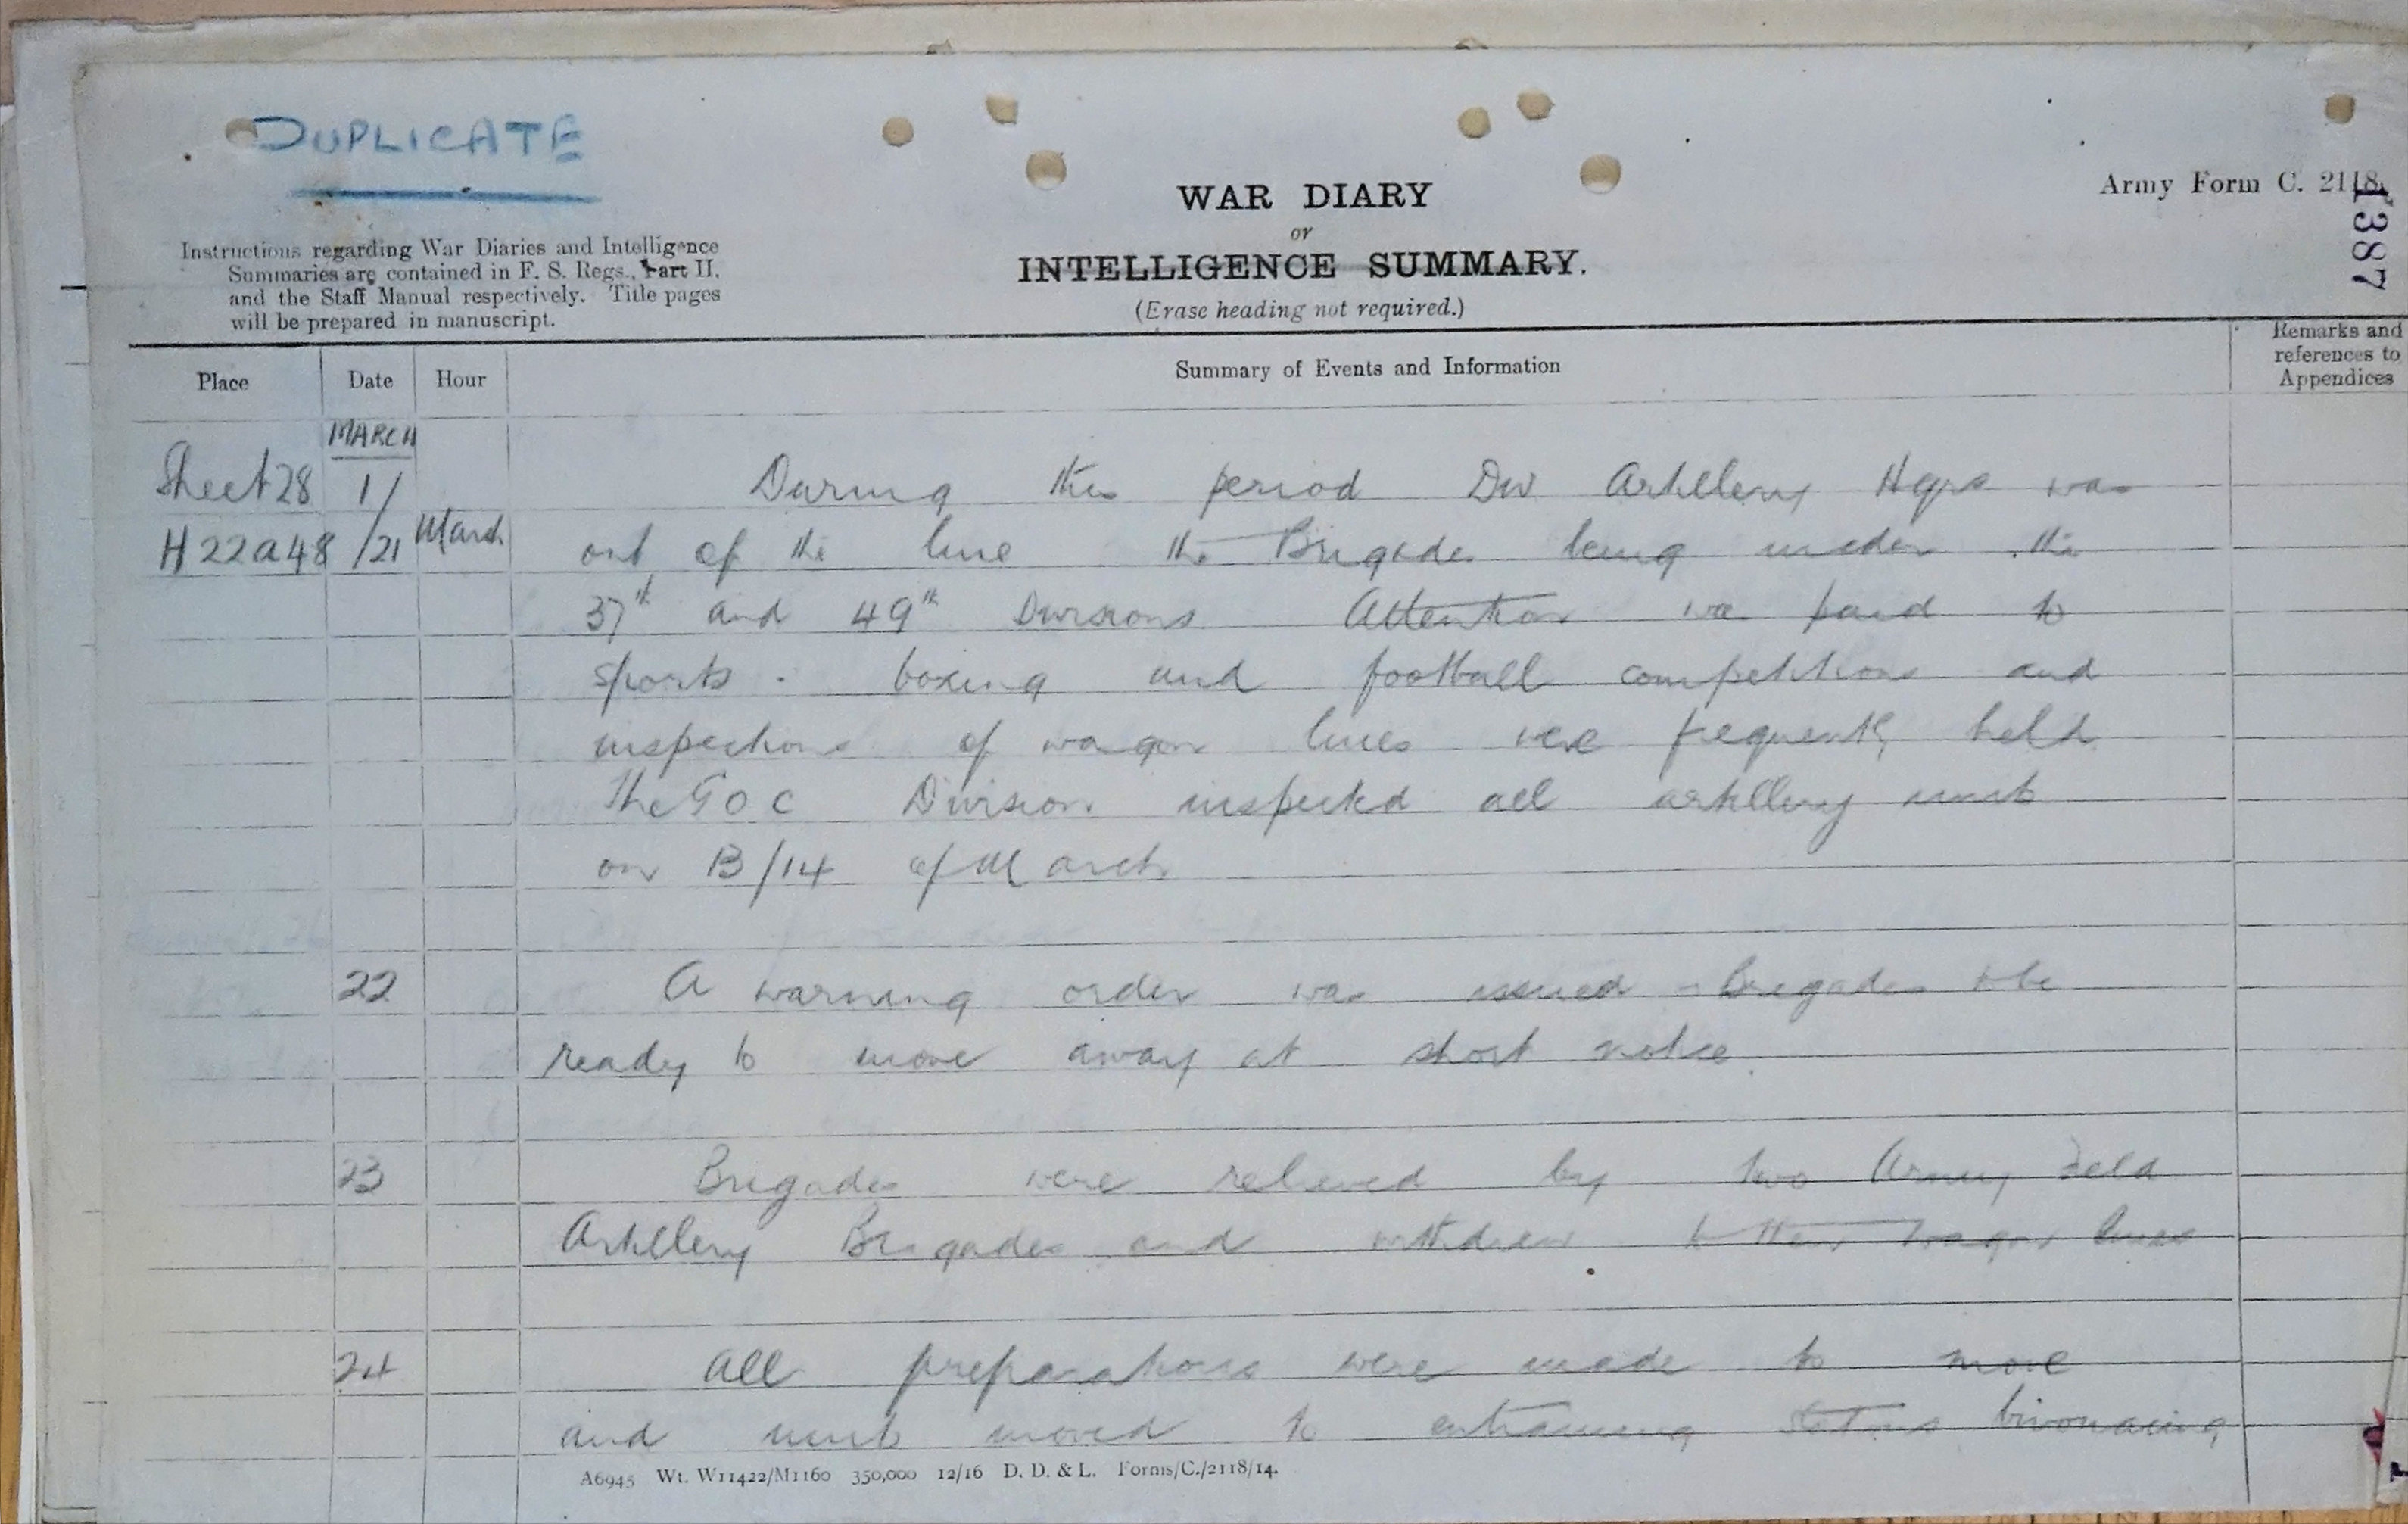 DUPLICATE
Army Form C. 2118.
1387
WAR DIARY
or
INTELLIGENCE SUMMARY.
(Erase heading not required.)
Instructions regarding War Diaries and Intelligence
Summaries are contained in F. S. Regs., Part II.
and the Staff Manual respectively. Title pages
will be prepared in manuscript.
Place Date Hour Summary of Events and Information Remarks and
references to
Appendices
MARCH
Sheet 28 1/ During this period Div Artillery Hqrs was
H22a48 /21 March out of the line the Brigades being under the
37th and 49th Divisions Attention was paid to
sports . boxing and football competitions and
inspections of wagon lines were frequently held
The G O C Division inspected all artillery units
on 13/14 of March
22 A warning order was issued - Brigades to be
ready to move away at short notice.
23 Brigades were relieved by two Army Field
Artillery Brigades and withdrew to their wagon lines
24 All preparations were made to move
and units moved to entraining stations bivouacing
A6945 Wt. W11422/M1160 350,000 12/16 D. D. & L. Forms/C./2118/14.